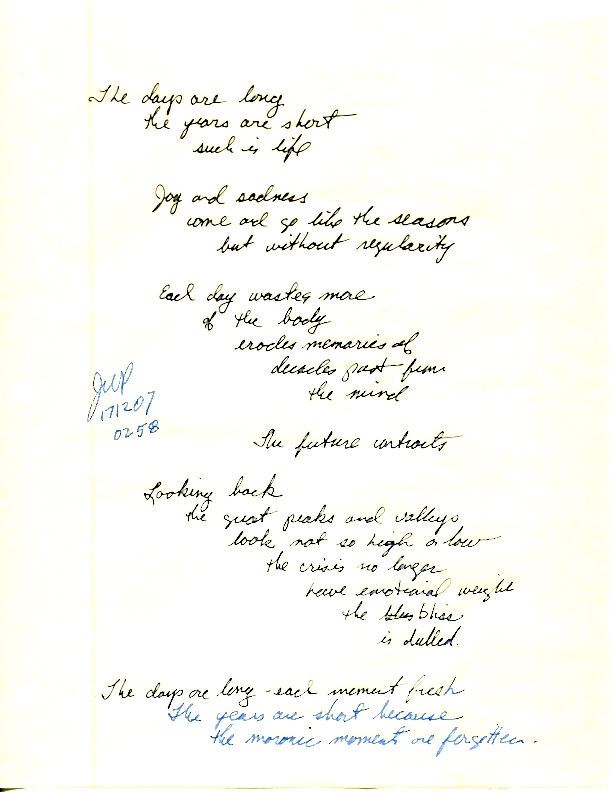 The days are long
the years are short
such is life
Joy and sadness
come and go like the seasons
but without regularity
Each day wastes more
of the body
erodes memories of
decades past from
the mind
JWP
171207
0258
The future contracts
Looking back
the great peaks and valleys
look not so high or low
the crisis no longer
have emotional weight
the bliss
is dulled.
The days are long - each moment fresh
The years are short because
the moronic moments are forgotten.